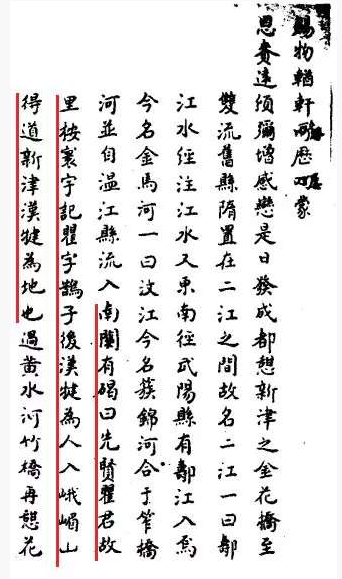 錫物輶軒所歷叨蒙
恩賚遠頒彌增感戀是日發成都憩新津之金花橋至
雙流舊縣隋置在二江之間故名二江一曰鄩
江水經注江水又東南徑武陽縣有鄩江入焉
今名金馬河一曰汶江今名簇錦河合于笮橋
河並自温江縣流入南關有碣曰先賢瞿君故
里按寰宇記瞿字鵲子後漢犍為人入峨嵋山
得道新津漢犍為地也過黃水河竹橋再憩花